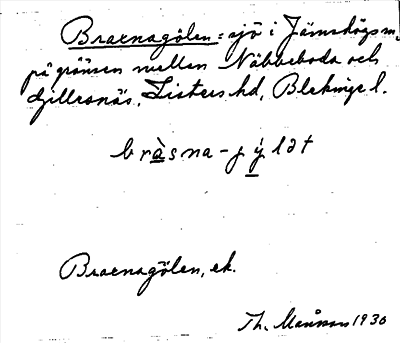 Brasnagölen = sjö i Jämshögs sn,
på gränsen mellan Näbbeboda och
Gillesnäs, Listers hd, Blekinge l.
bràsna-jýlət
Brasnagölen, ek.
Th. Månsson 1930